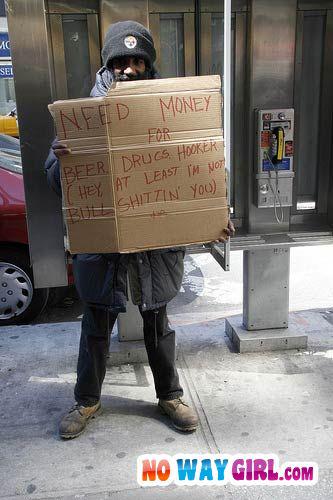 NEED MONEY
FOR
BEER, DRUGS, HOOKER
(HEY, AT LEAST I'M NOT
BULL SHITTIN' YOU)
NO WAY GIRL.COM